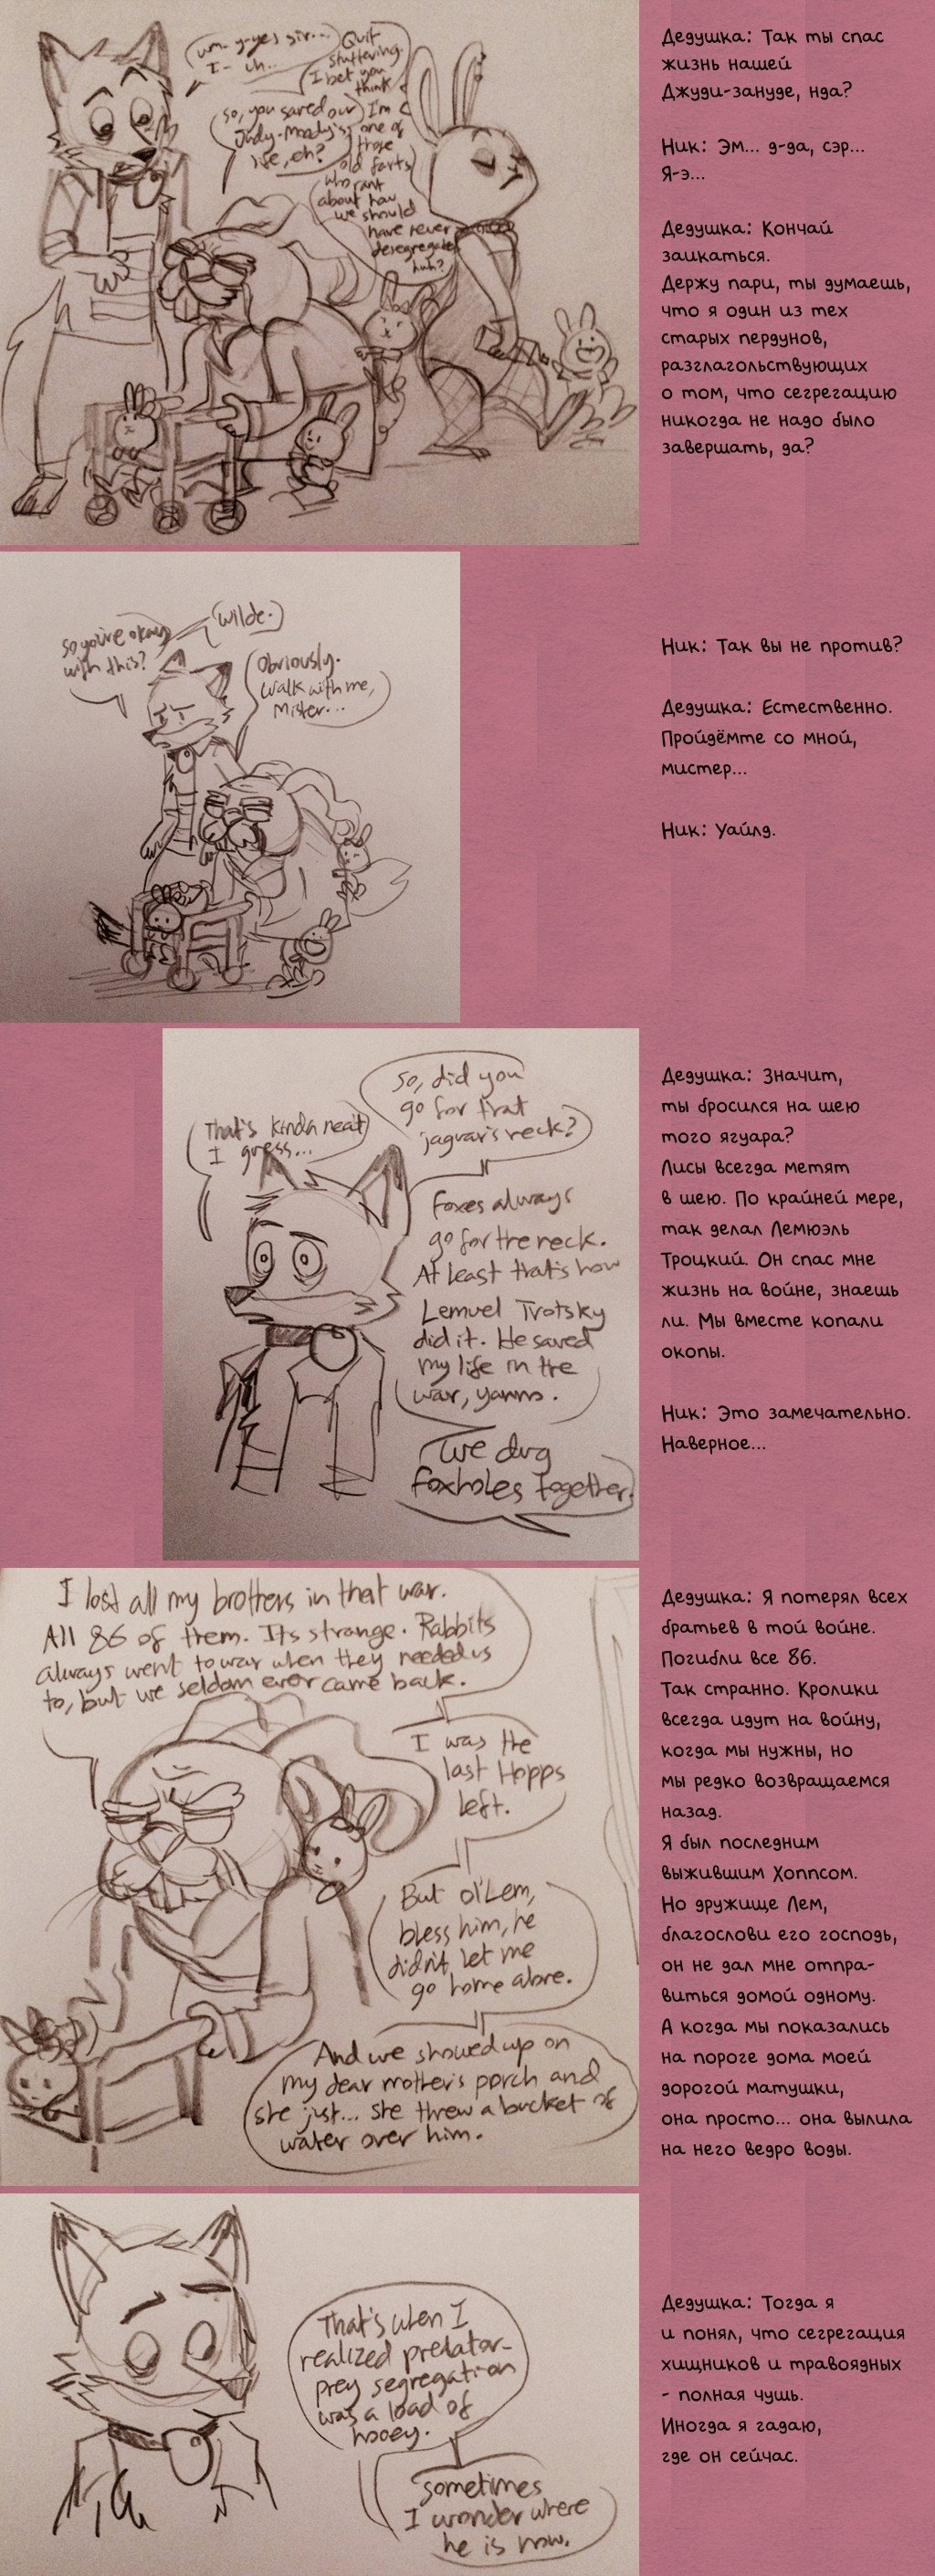 um- y-yes sir...
I- uh...
Quit
stuttering.
I bet you
think
I'm
one of
those
old farts
who rant
about how
we should
have never
desegregated
huh?
so, you saved our
Judy-Moody's
life, eh?
Дедушка: Так ты спас
жизнь нашей
Джуди-зануде, нда?
Ник: Эм... д-да, сэр...
Я-э...
Дедушка: Кончай
заикаться.
Держу пари, ты думаешь,
что я один из тех
старых пердунов,
разглагольствующих
о том, что сегрегацию
никогда не надо было
завершать, да?
so you're okay
with this?
Obviously.
Walk with me,
Mister...
Wilde.
Ник: Так вы не против?
Дедушка: Естественно.
Пройдёмте со мной,
мистер...
Ник: Уайлд.
So, did you
go for that
jaguar's neck?
Foxes always
go for the neck.
At least that's how
Lemuel Trotsky
did it. He saved
my life in the
war, yanno.
We dug
foxholes together.
That's kinda neat
I guess...
Дедушка: Значит,
ты бросился на шею
того ягуара?
Лисы всегда метят
в шею. По крайней мере,
так делал Лемюэль
Троцкий. Он спас мне
жизнь на войне, знаешь
ли. Мы вместе копали
окопы.
Ник: Это замечательно.
Наверное...
I lost all my brothers in that war.
All 86 of them. Its strange. Rabbits
always went to war when they needed us
to, but we seldom ever came back.
I was the
last Hopps
left.
But ol' Lem,
bless him, he
didn't let me
go home alone.
And we showed up on
my dear mother's porch and
she just... she threw a bucket of
water over him.
Дедушка: Я потерял всех
братьев в той войне.
Погибли все 86.
Так странно. Кролики
всегда идут на войну,
когда мы нужны, но
мы редко возвращаемся
назад.
Я был последним
выжившим Хоппсом.
Но дружище Лем,
благослови его господь,
он не дал мне отпра-
виться домой одному.
А когда мы показались
на пороге дома моей
дорогой матушки,
она просто... она вылила
на него ведро воды.
That's when I
realized predator-
prey segregation
was a load of
hooey.
Sometimes
I wonder where
he is now.
Дедушка: Тогда я
и понял, что сегрегация
хищников и травоядных
- полная чушь.
Иногда я гадаю,
где он сейчас.